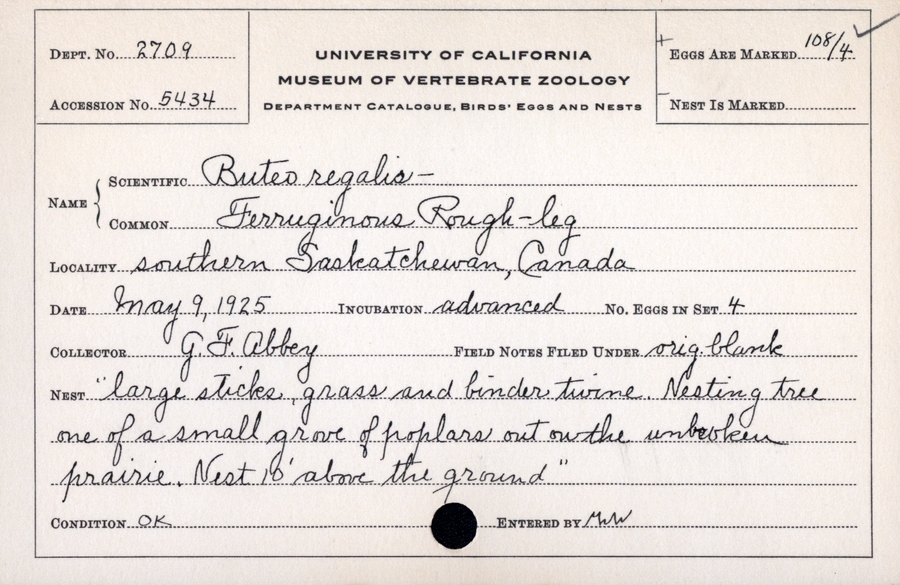 DEPT. No. 2709
ACCESSION No. 5434
UNIVERSITY OF CALIFORNIA
MUSEUM OF VERTEBRATE ZOOLOGY
DEPARTMENT CATALOGUE, BIRDS' EGGS AND NESTS
+ EGGS ARE MARKED 108/4 ✓
- NEST IS MARKED
NAME { SCIENTIFIC Buteo regalis -
COMMON Ferruginous Rough-leg
LOCALITY southern Saskatchewan, Canada
DATE May 9, 1925 INCUBATION advanced No. EGGS IN SET 4
COLLECTOR G. F. Abbey FIELD NOTES FILED UNDER orig. blank
NEST "large sticks, grass and binder twine. Nesting tree
one of a small grove of poplars out on the unbroken
prairie. Nest 10' above the ground"
CONDITION OK ENTERED BY